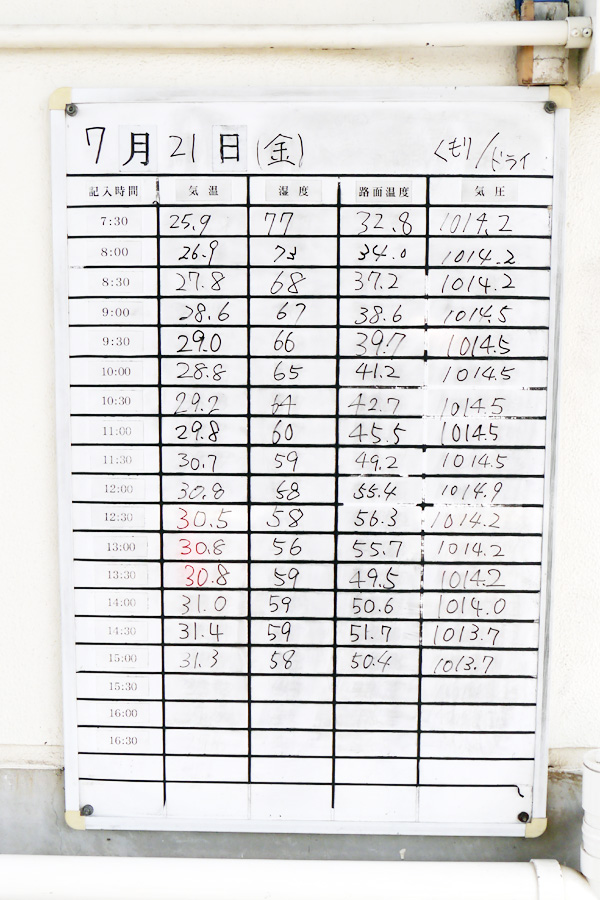 7月21日(金) くもり/ドライ
記入時間 気温 湿度 路面温度 気圧
7:30 25.9 77 32.8 1014.2
8:00 26.9 73 34.0 1014.2
8:30 27.8 68 37.2 1014.2
9:00 28.6 67 38.6 1014.5
9:30 29.0 66 39.7 1014.5
10:00 28.8 65 41.2 1014.5
10:30 29.2 64 42.7 1014.5
11:00 29.8 60 45.5 1014.5
11:30 30.7 59 49.2 1014.5
12:00 30.8 58 55.4 1014.9
12:30 30.5 58 56.3 1014.2
13:00 30.8 56 55.7 1014.2
13:30 30.8 59 49.5 1014.2
14:00 31.0 59 50.6 1014.0
14:30 31.4 59 51.7 1013.7
15:00 31.3 58 50.4 1013.7
15:30
16:00
16:30